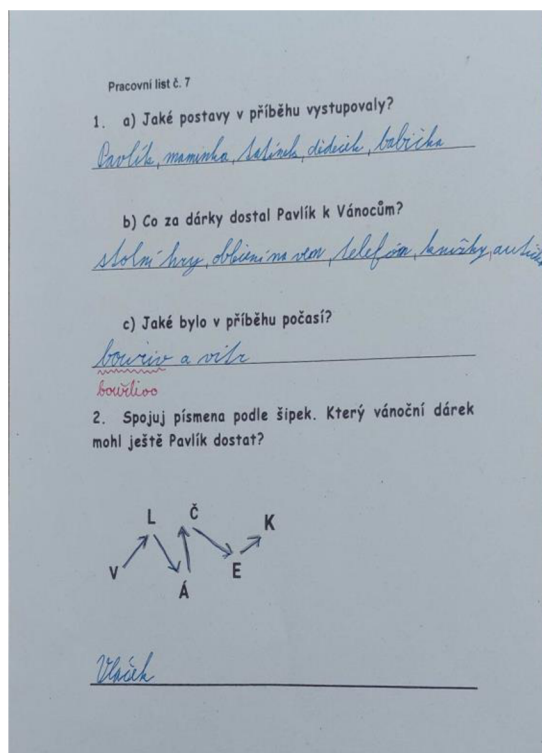 Pracovní list č. 7
1. a) Jaké postavy v příběhu vystupovaly?
Pavlík, maminka, tatínek, dědeček, babička
b) Co za dárky dostal Pavlík k Vánocům?
stolní hry, oblečení na ven, telefón, knížky,
c) Jaké bylo v příběhu počasí?
bouřiv a vítr
bouřlivo
2. Spojuj písmena podle šipek. Který vánoční dárek
mohl ještě Pavlík dostat?
L Č K
V Á E
Vláček